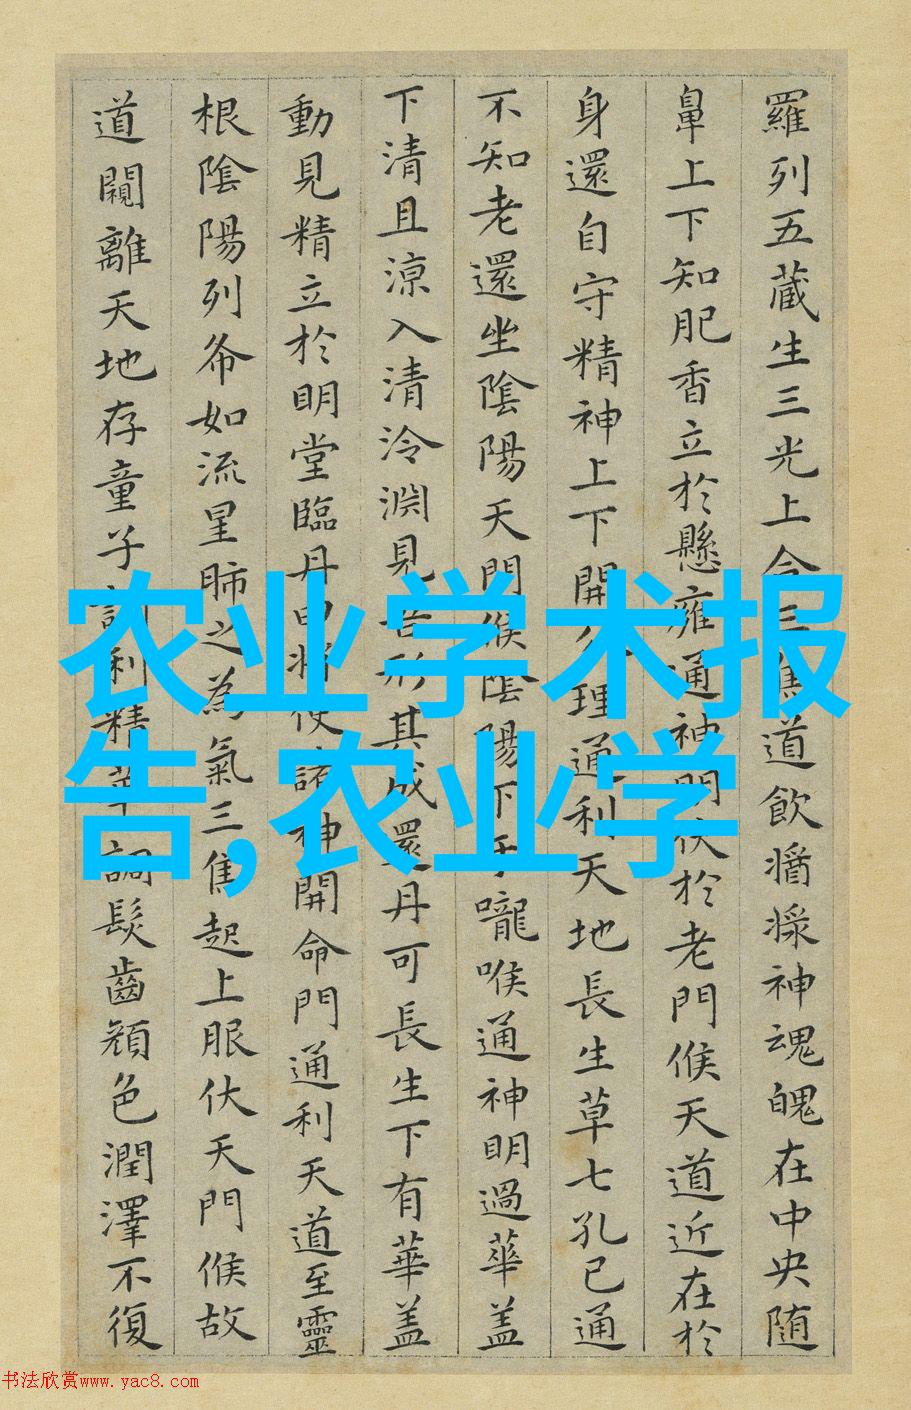 羅列五藏生三光上合三焦道飲醬漿神魂魄在中央随
鼻上下知肥香立於懸雍通神明伏於老門候天道近在於
身還自守精神上下開分理通利天地長生草七孔已通
不知老還坐陰陽天門候陰陽下于嚨喉通神明過華盖
下清且涼入清泠淵見吾形其成還丹可長生下有華盖
動見精立於明堂臨丹田將使諸神開命門通利天道至靈
根陰陽列布如流星肺之為氣三焦起上服伏天門候故
道闚離天地存童子調利精華調髮齒顏色潤澤不復
农业学术报
告,农业学
书法欣赏www.yac8.com